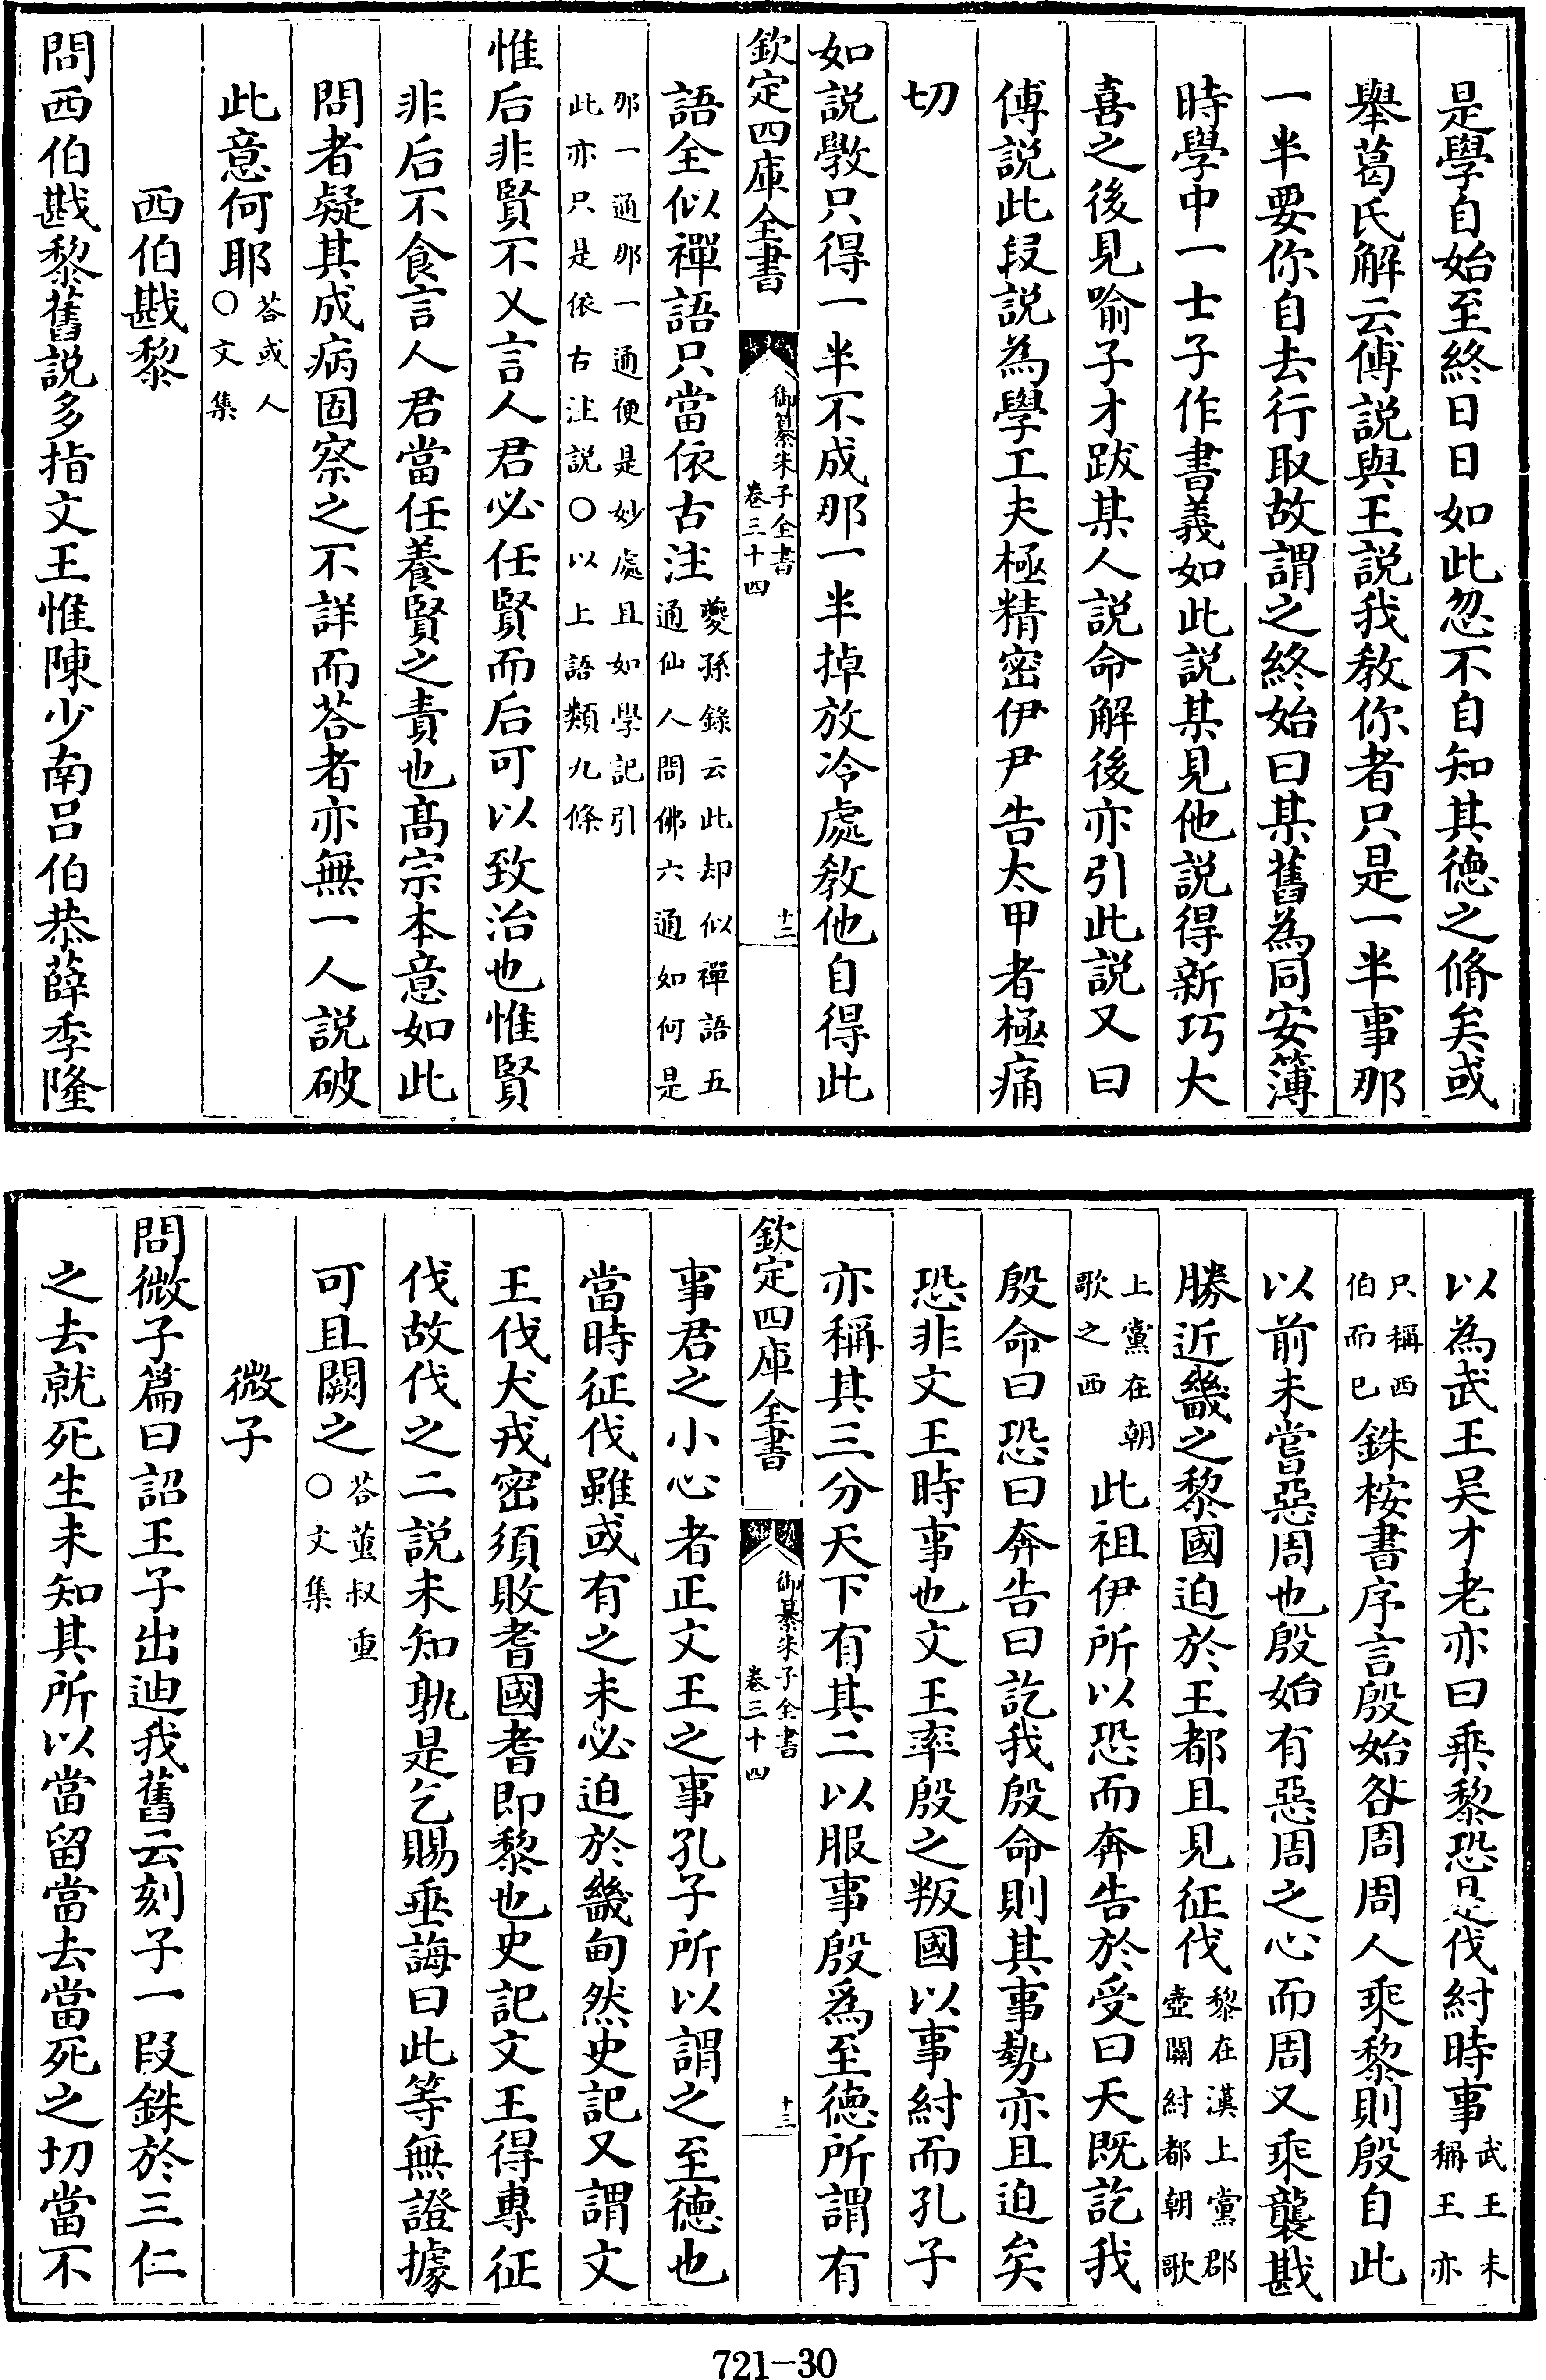 是學自始至終日日如此忽不自知其德之脩矣或
舉葛氏解云傅説與王説我教你者只是一半事那
一半要你自去行取故謂之終始曰某舊為同安簿
時學中一士子作書義如此説某見他説得新巧大
喜之後見喻子才跋某人説命解後亦引此説又曰
傅説此段説為學工夫極精密伊尹告太甲者極痛
切
如説斆只得一半不成那一半掉放冷處教他自得此
欽定四庫全書
御纂朱子全書
卷三十四
十二
語全似禪語只當依古注
夔孫錄云此却似禪語五
通仙人問佛六通如何是
那一通那一通便是妙處且如學記引
此亦只是依古注説○以上語類九條
惟后非賢不乂言人君必任賢而后可以致治也惟賢
非后不食言人君當任養賢之責也髙宗本意如此
問者疑其成病固察之不詳而荅者亦無一人説破
此意何耶
荅或人
○文集
西伯戡黎
問西伯戡黎舊説多指文王惟陳少南吕伯恭薛季隆
以為武王吴才老亦曰乘黎恐是伐紂時事
武王未
稱王亦
只稱西
伯而已
銖桉書序言殷始咎周周人乘黎則殷自此
以前未嘗惡周也殷始有惡周之心而周又乘襲戡
勝近畿之黎國迫於王都且見征伐
黎在漢上黨郡
壺關紂都朝歌
上黨在朝
歌之西
此祖伊所以恐而奔告於受曰天既訖我
殷命曰恐曰奔告曰訖我殷命則其事勢亦且迫矣
恐非文王時事也文王率殷之叛國以事紂而孔子
亦稱其三分天下有其二以服事殷爲至德所謂有
欽定四庫全書
御纂朱子全書
卷三十四
十三
事君之小心者正文王之事孔子所以謂之至德也
當時征伐雖或有之未必迫於畿甸然史記又謂文
王伐犬戎密須敗耆國耆即黎也史記文王得專征
伐故伐之二説未知孰是乞賜垂誨曰此等無證據
可且闕之
荅董叔重
○文集
微子
問微子篇曰詔王子出迪我舊云刻子一段銖於三仁
之去就死生未知其所以當留當去當死之切當不
721-30